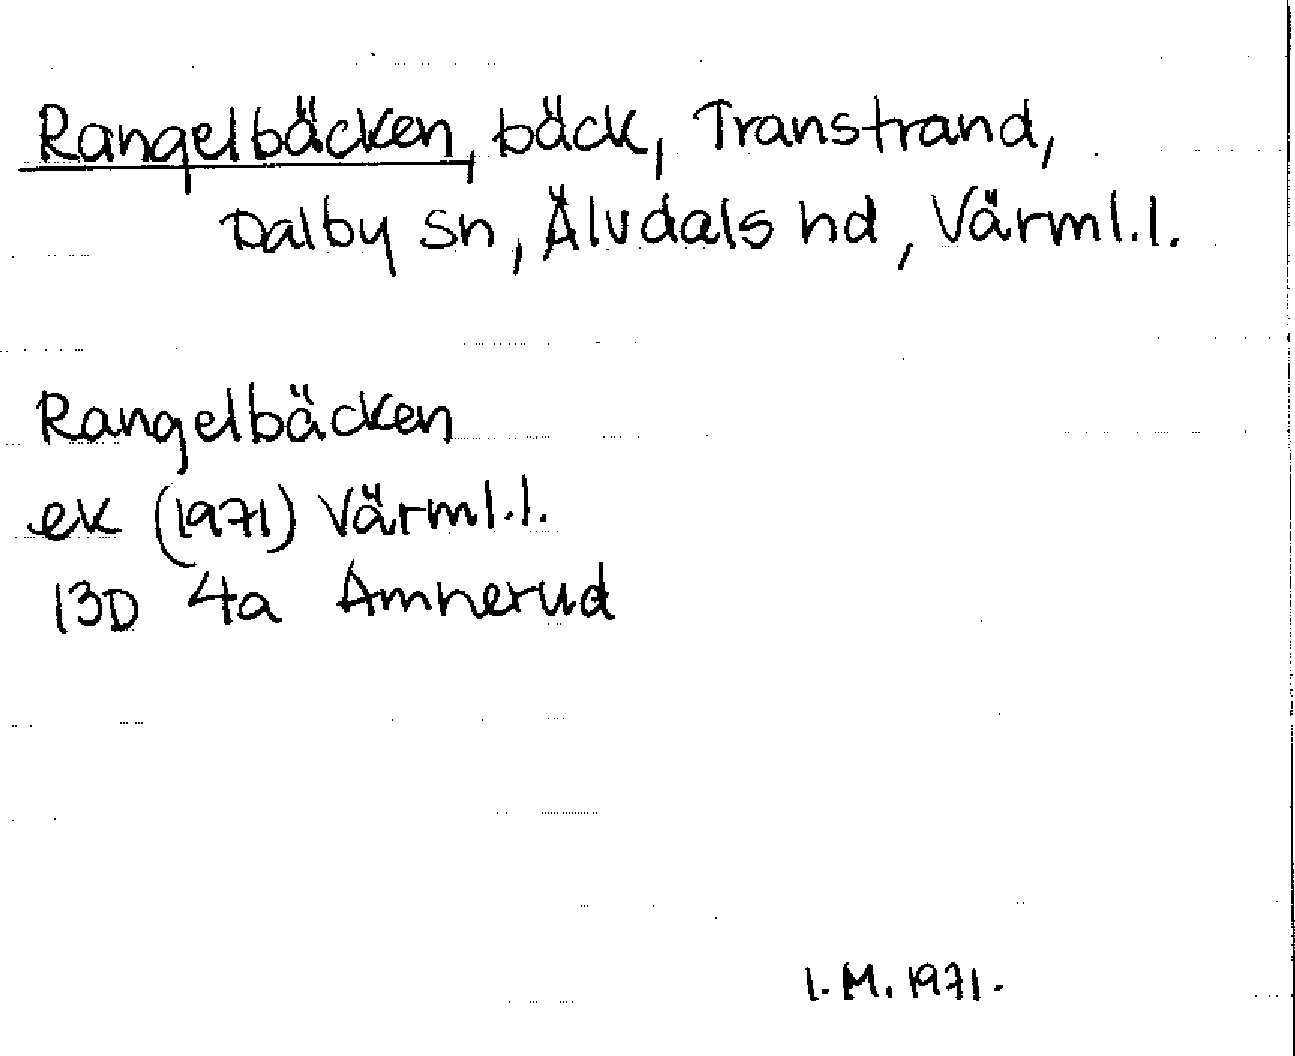 Rangelbäcken, bäck, Transtrand,
Dalby sn, Älvdals hd, Värml.l.
Rangelbäcken
ek (1971) Värml.l.
13D 4a Amnerud
I.M. 1971.